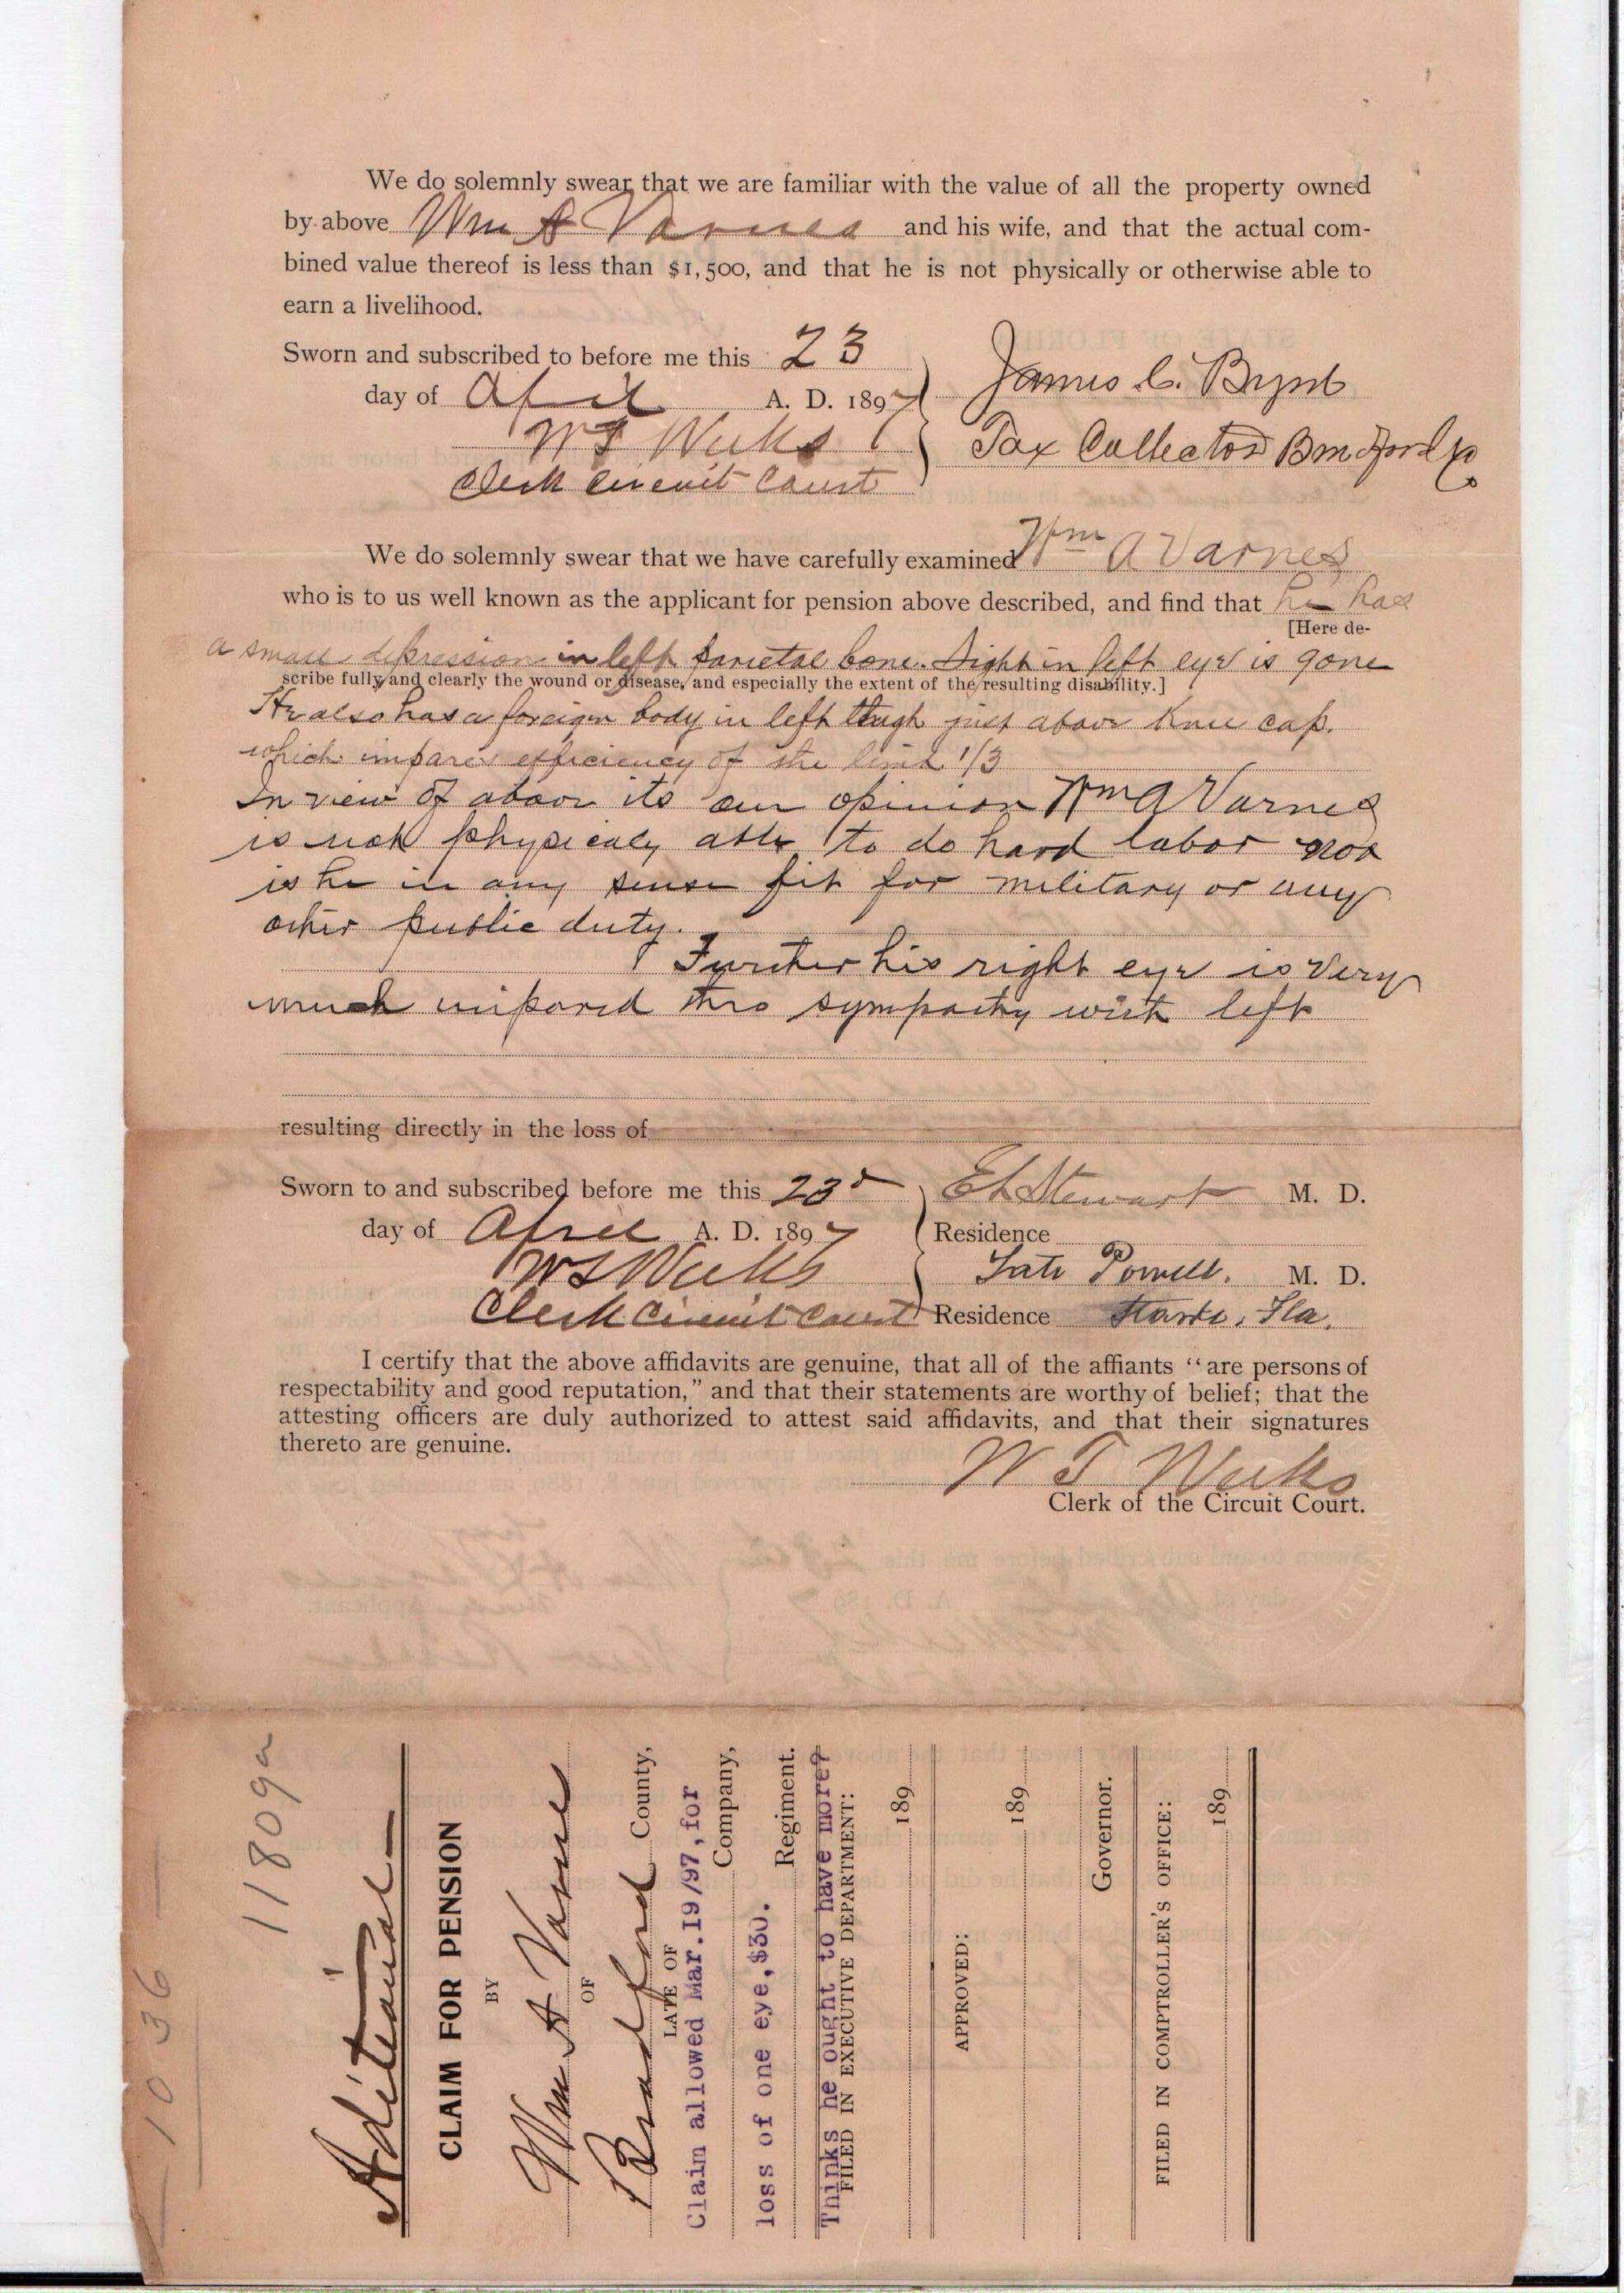 We do solemnly swear that we are familiar with the value of all the property owned
by above Wm A Varnes and his wife, and that the actual com-
bined value thereof is less than $1,500, and that he is not physically or otherwise able to
earn a livelihood.
Sworn and subscribed to before me this 23
day of April A. D. 1897
James C.
W T Weeks
Tax Collector Bradford Co
Clerk Circuit Court
We do solemnly swear that we have carefully examined Wm A Varnes
who is to us well known as the applicant for pension above described, and find that he has
[Here de-
a small depression in left parietal bone. Sight in left eye is gone
scribe fully and clearly the wound or disease, and especially the extent of the resulting disability.]
He also has a foreign body in left thigh just above Knee cap.
which impares efficiency of the limb 1/3
In view of above its our opinion Wm A Varnes
is not physicaly able to do hard labor nor
is he in any sense fit for military or any
other public duty.
Further his right eye is very
much impared thro sympathy with left
resulting directly in the loss of
Sworn to and subscribed before me this 23d
E L Stewart M. D.
day of April A. D. 1897
Residence
W T Weeks
Powell. M. D.
Clerk Circuit Court
Residence Starke, Fla.
I certify that the above affidavits are genuine, that all of the affiants "are persons of
respectability and good reputation," and that their statements are worthy of belief; that the
attesting officers are duly authorized to attest said affidavits, and that their signatures
thereto are genuine.
W T Weeks
Clerk of the Circuit Court.
1036
11809a
Aditional
CLAIM FOR PENSION
BY
Wm A Varnes
OF
Bradford County,
LATE OF
Claim allowed Mar.19/97, for
Company,
loss of one eye,$30.
Regiment.
Thinks he ought to have more?
FILED IN EXECUTIVE DEPARTMENT:
189
APPROVED:
189
Governor.
FILED IN COMPTROLLER'S OFFICE:
189